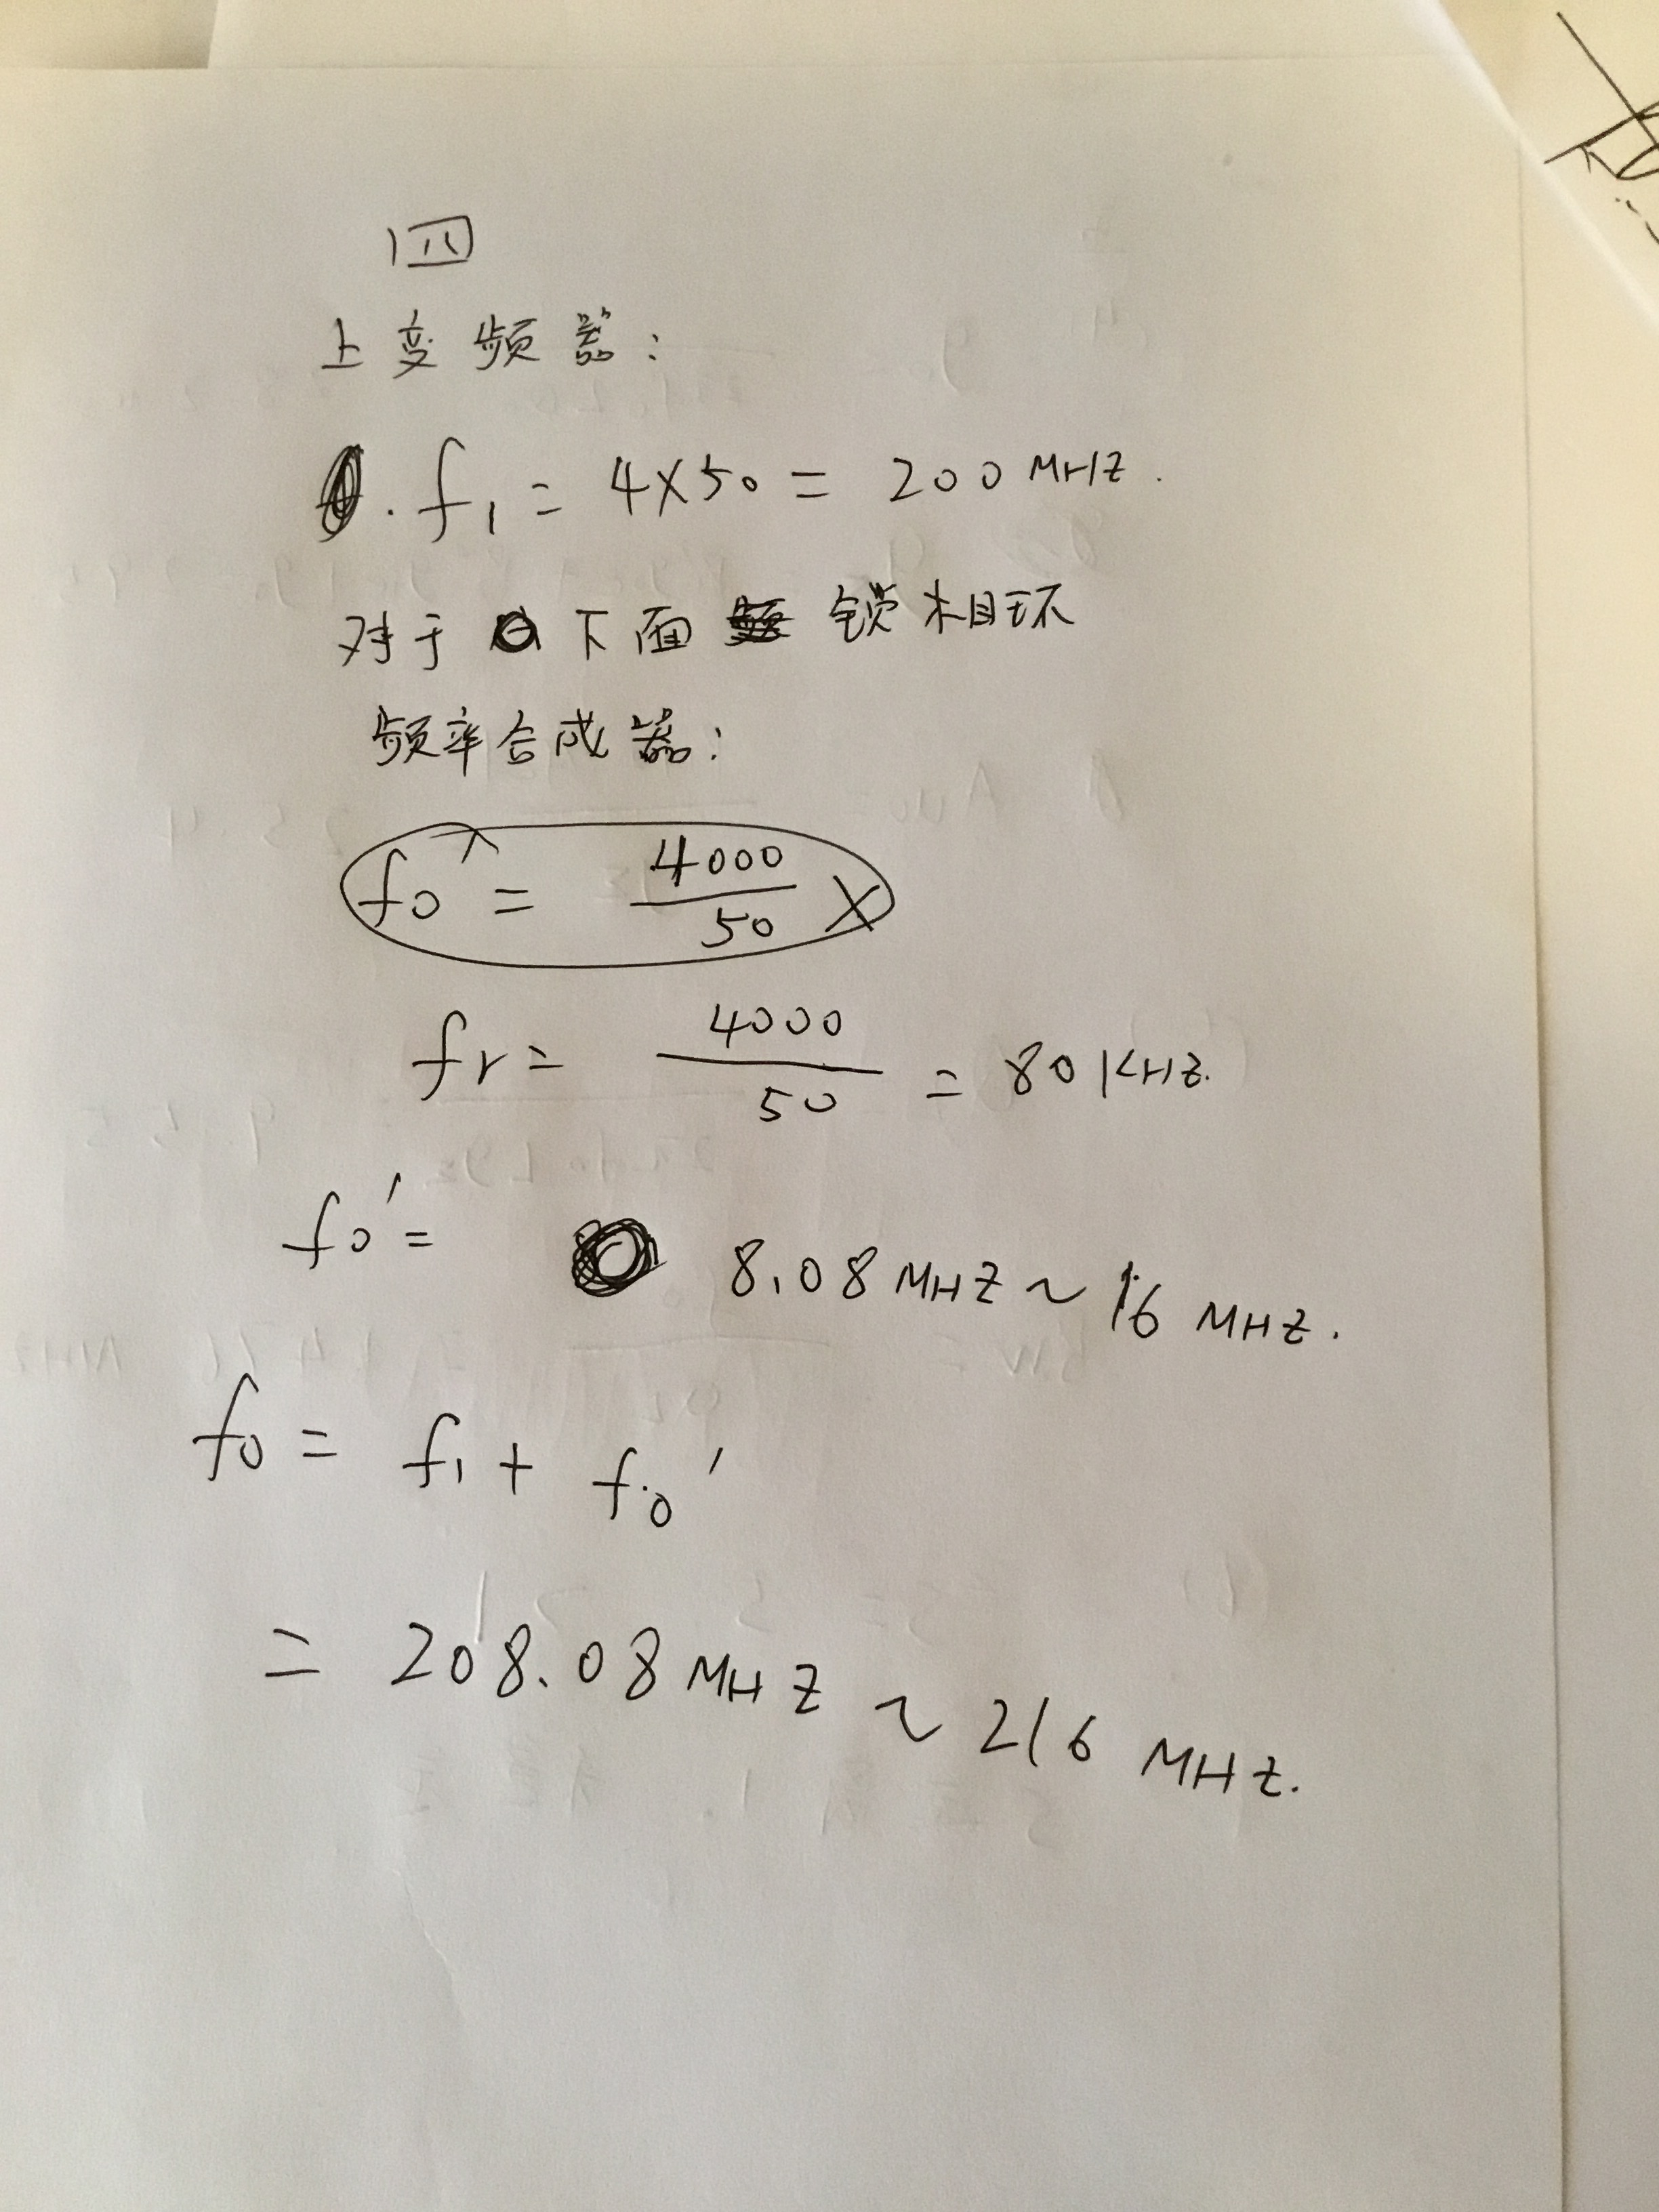 四
上变频器:
f₁ = 4×50 = 200 MHZ.
对于下面锁相环
频率合成器:
f₀' = 4000/50 ×
fr = 4000/50 = 80 KHZ.
f₀' = 8.08 MHZ ~ 16 MHZ.
f₀ = f₁ + f₀'
= 208.08 MHZ ~ 216 MHZ.